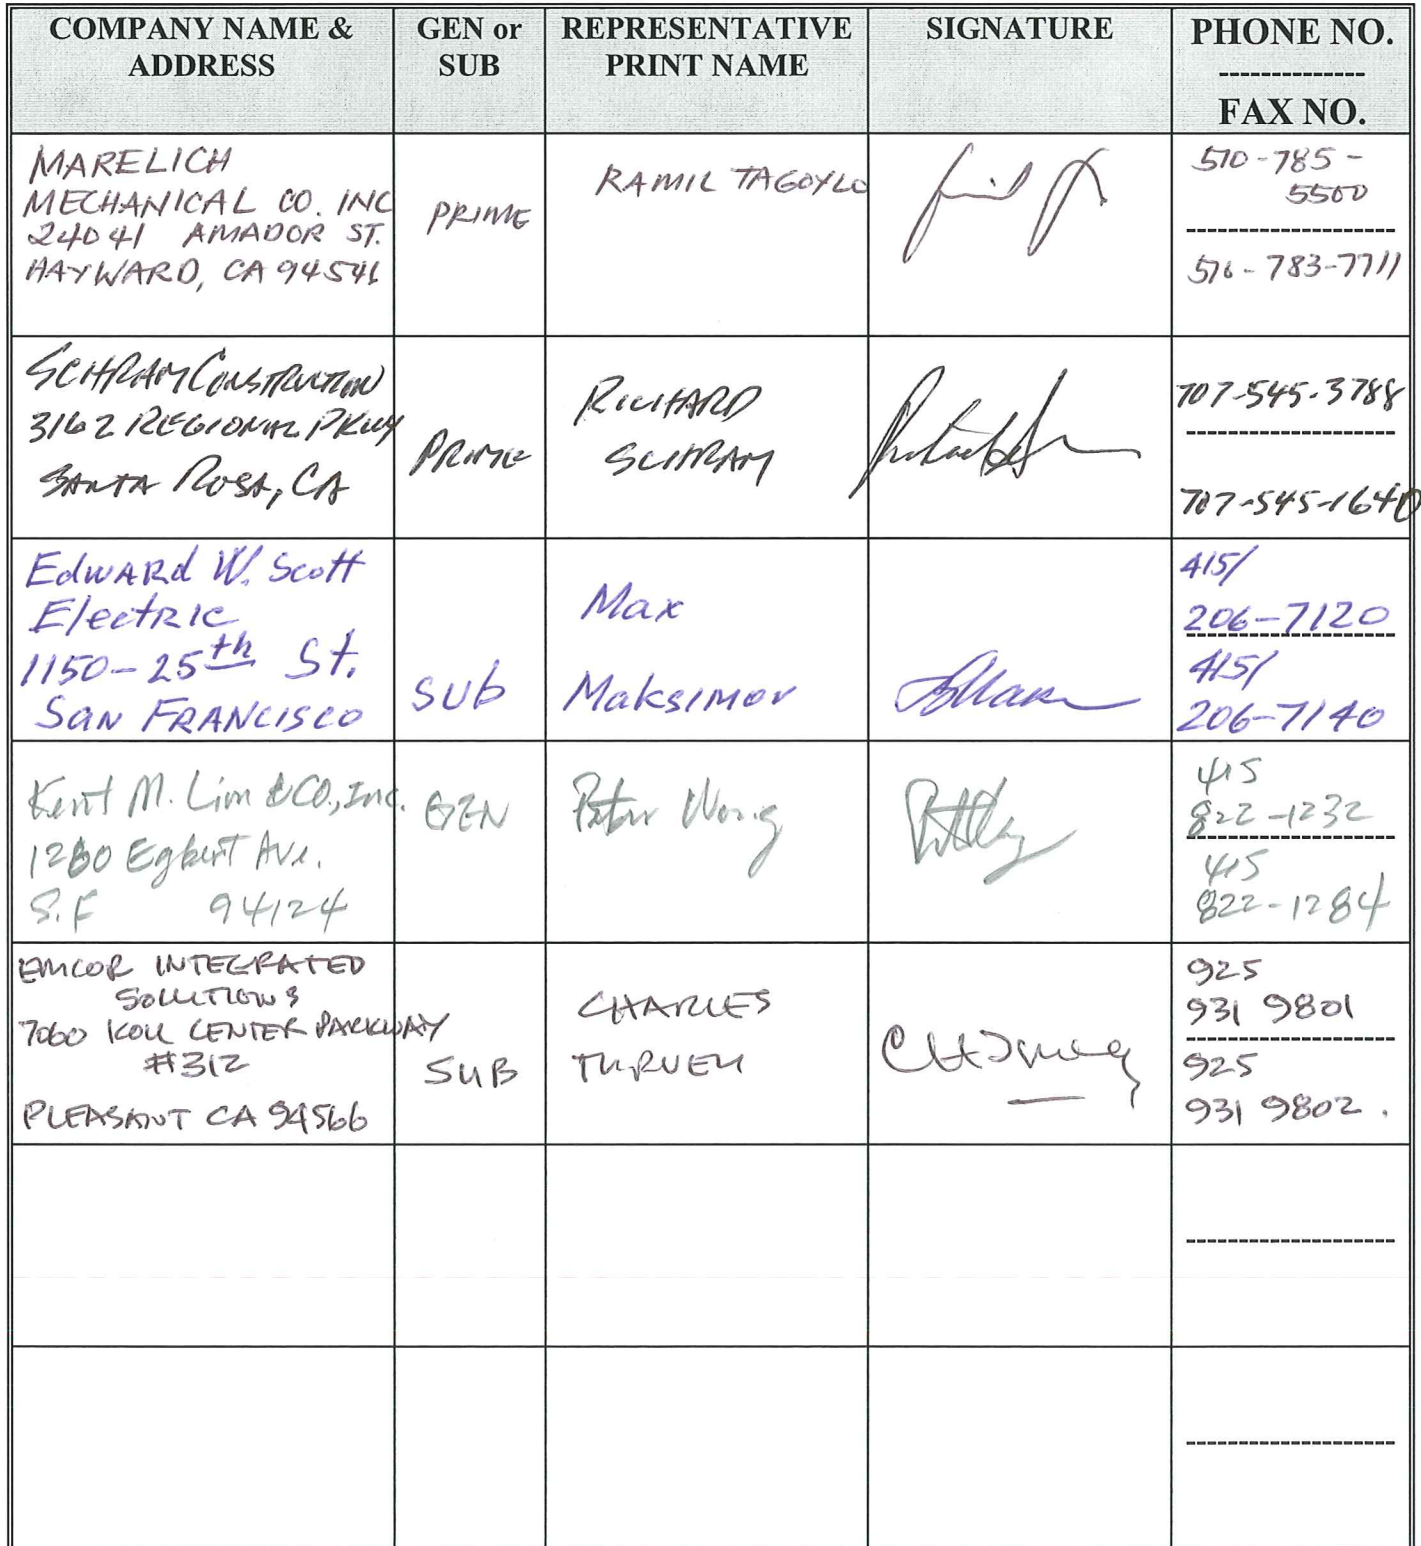 COMPANY NAME &
ADDRESS
GEN or
SUB
REPRESENTATIVE
PRINT NAME
SIGNATURE
PHONE NO.
--------------
FAX NO.
MARELICH
MECHANICAL CO. INC
24041 AMADOR ST.
HAYWARD, CA 94541
PRIME
RAMIL TAGOYLO
510-785-
5500
510-783-7711
SCHRAM CONSTRUCTION
3162 REGIONAL PKWY
SANTA ROSA, CA
PRIME
RICHARD
SCHRAM
707-545-3788
707-545-1640
Edward W. Scott
Electric
1150-25th St.
San Francisco
Sub
Max
Maksimov
415/
206-7120
415/
206-7140
Kent M. Lim & CO., Inc.
1260 Egbert Ave.
S.F 94124
GEN
Peter Wong
415
822-1232
415
822-1284
EMCOR INTEGRATED
SOLUTIONS
7060 KOLL CENTER PARKWAY
#312
PLEASANT CA 94566
SUB
CHARLES
925
931 9801
925
931 9802.